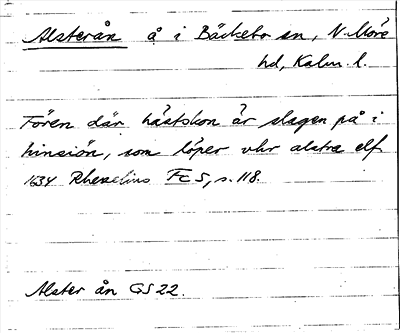 Alsterån å i Bäckebo sn, N. Möre
hd, Kalm. l.
Fören där hästskon är slagen på i
hinsiön, som löper vhr alstra elf
1634 Rhezelius Fc 5, s. 118.
Alster ån GS 22.